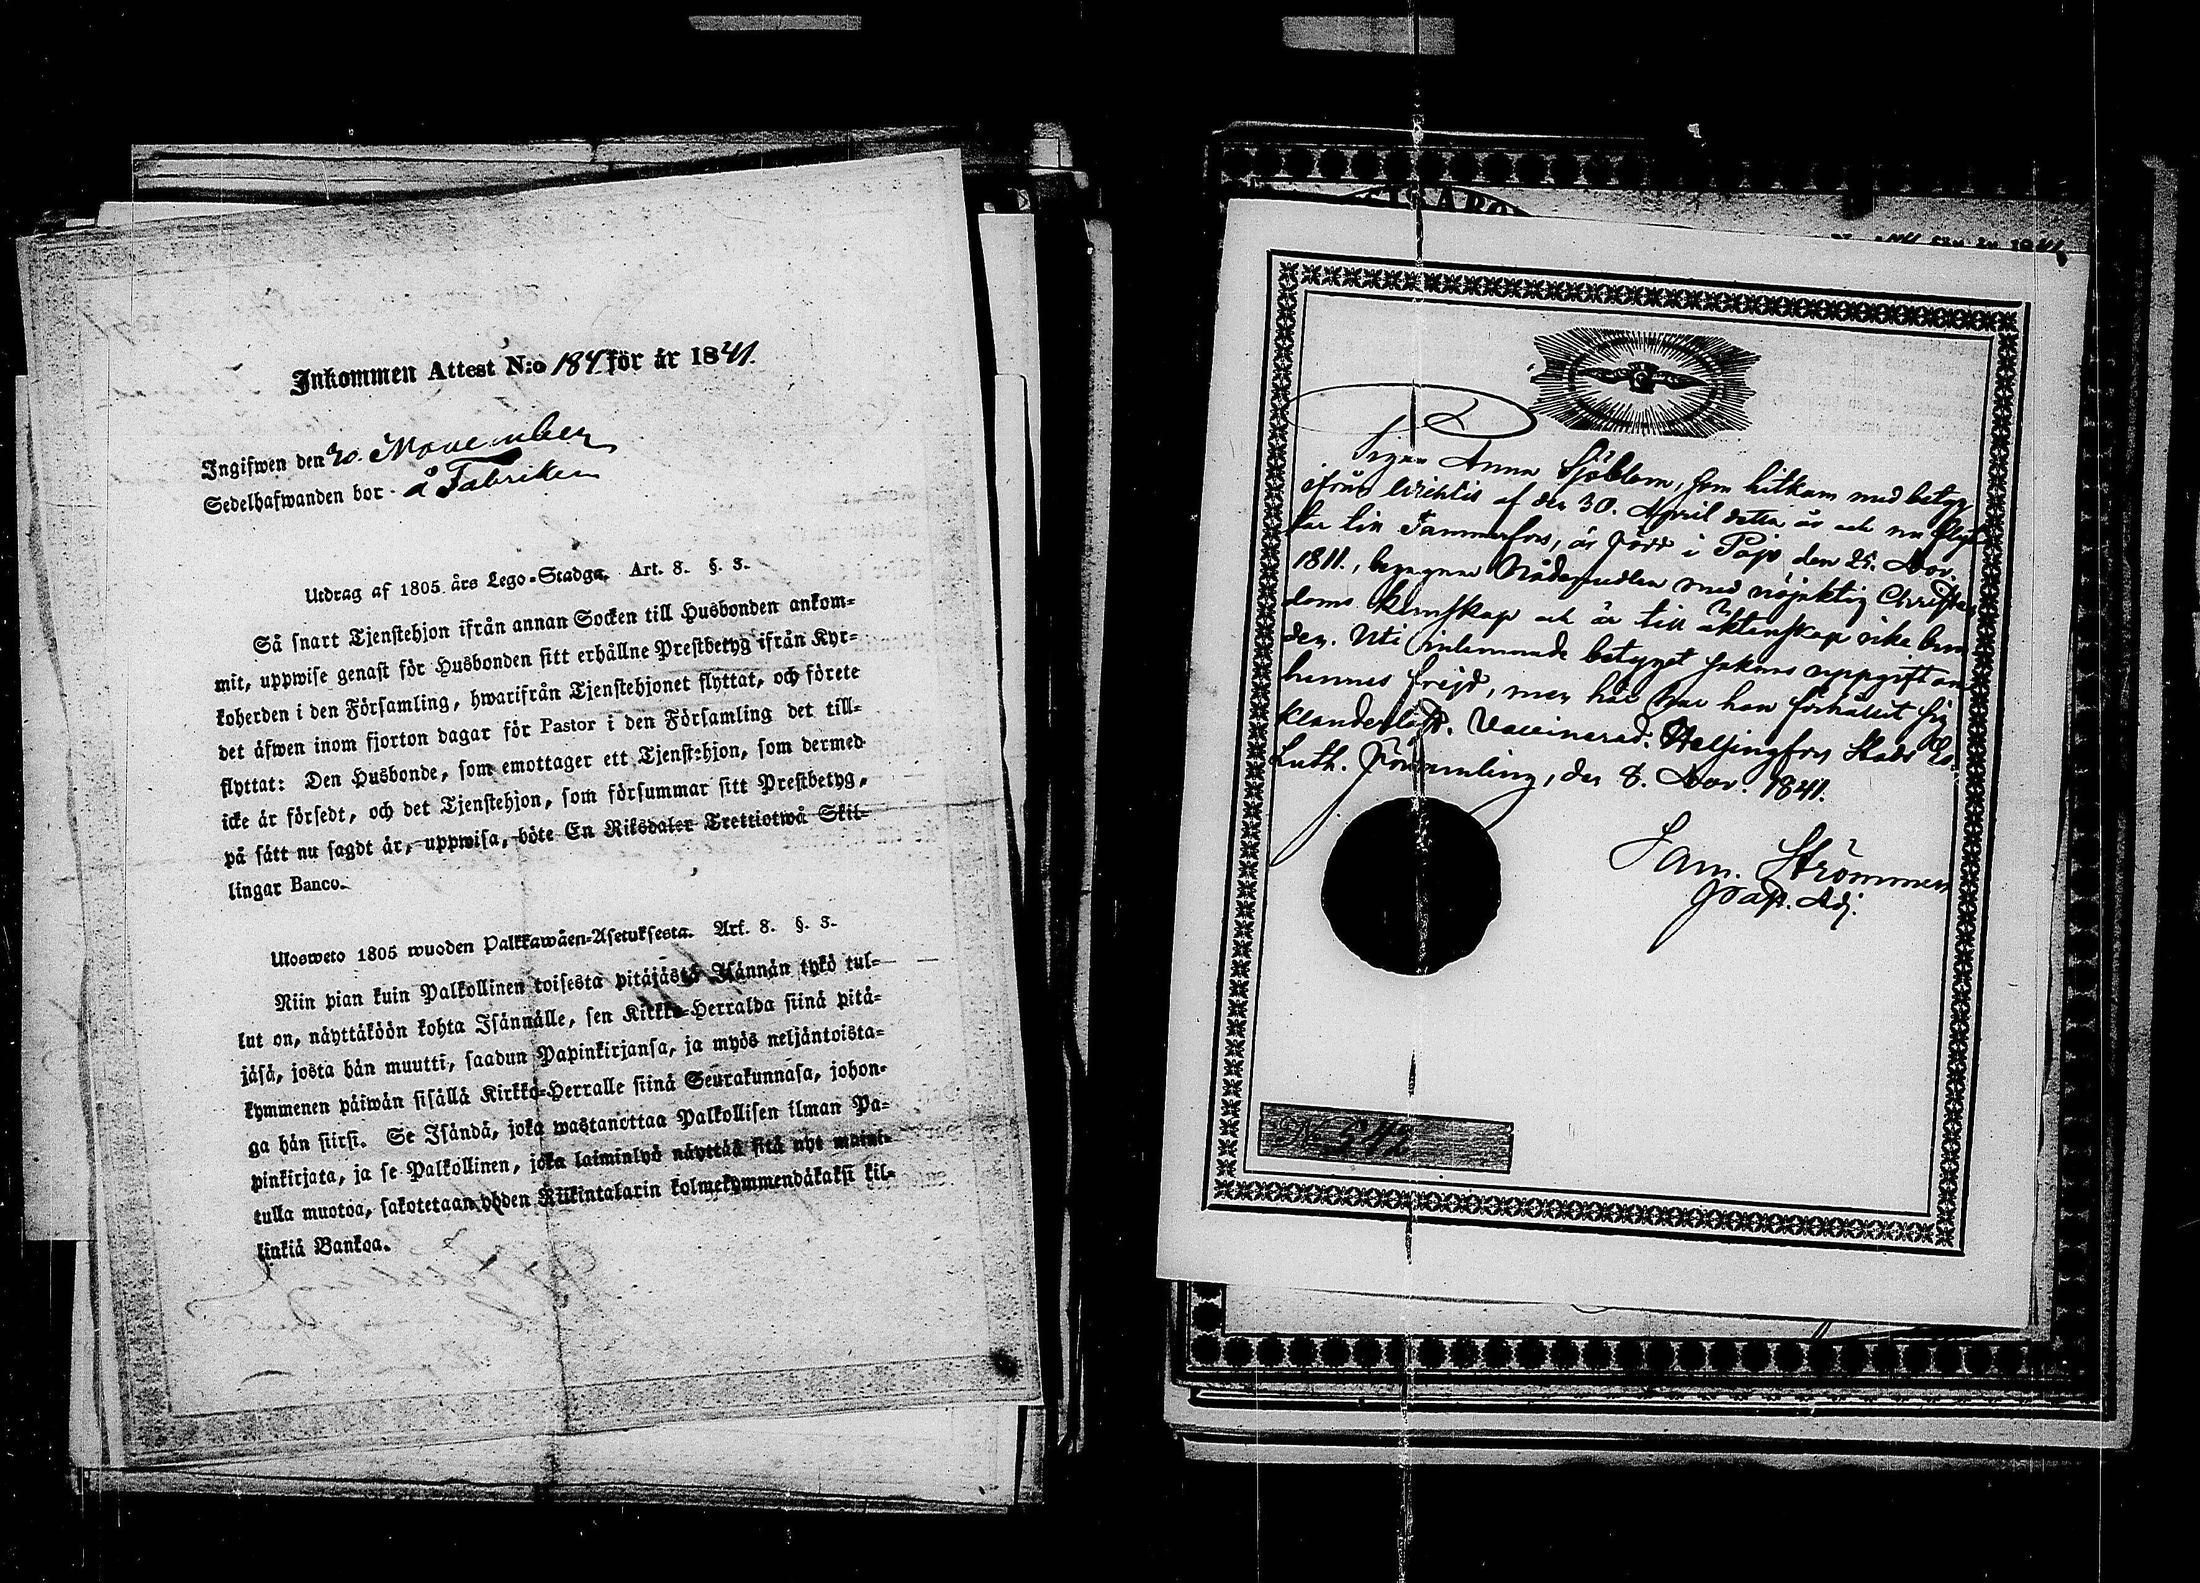 Inkommen Attest N:o 184 för år 1841.
Ingifwen den 20. November
Sedelhafwanden bor å Fabriken
Utdrag af 1805 års Lego-Stadga. Art. 8. §. 3.
Så snart Tjenstehjon ifrån annan Socken till Husbonden ankom-
mit, uppwise genast för Husbonden sitt erhållne Prestbetyg ifrån Kyr-
koherden i den Församling, hwarifrån Tjenstehjonet flyttat, och förete
det äfwen inom fjorton dagar för Pastor i den Församling det till-
flyttat: Den Husbonde, som emottager ett Tjenstehjon, som dermed
icke är försedt, och det Tjenstehjon, som försummar sitt Prestbetyg,
på sätt nu sagdt är, uppwisa, böte En Riksdaler Trettiotwå Skil-
lingar Banco.
Ulosweto 1805 wuoden Palkkawäen-Asetuksesta. Art. 8. §. 3.
Niin pian kuin Palkollinen toisesta pitäjästä Isännän tykö tul-
lut on, näyttäköön kohta Isännälle, sen Kirkko-Herralda siinä pitä-
jäsä, josta hän muutti, saadun Papinkirjansa, ja myös neljäntoista-
kymmenen päiwän sisällä Kirkko-Herralle siinä Seurakunnasa, johon-
ga hän siirsi. Se Isändä, joka wastanottaa Palkollisen ilman Pa-
pinkirjata, ja se Palkollinen, joka laiminlyö näyttää sitä nyt maini-
tulla muotoa, sakotetaan yhden Riikintalarin kolmekymmendäkaksi kil-
linkiä Bankoa.
för år 1841.
Pigan Anna Sjöblom, som hitkom med betyg
ifrån Wichtis af den 30. April detta år och nu flyt-
tar till Tammerfors, är född i Pojo den 25. Nov.
1811., begagnar Nådemedlen med nöjaktig Christen-
doms kunskap och är till äktenskap icke bun-
den. Uti inlemnade betyget saknas uppgift om
hennes frejd, men här har hon förhållit sig
klanderlöst. Vaccinerad. Helsingfors Stads Ev.
Luth. Församling, den 8. Nov. 1841.
Sam. Strömmer
Past. Adj.
No 542